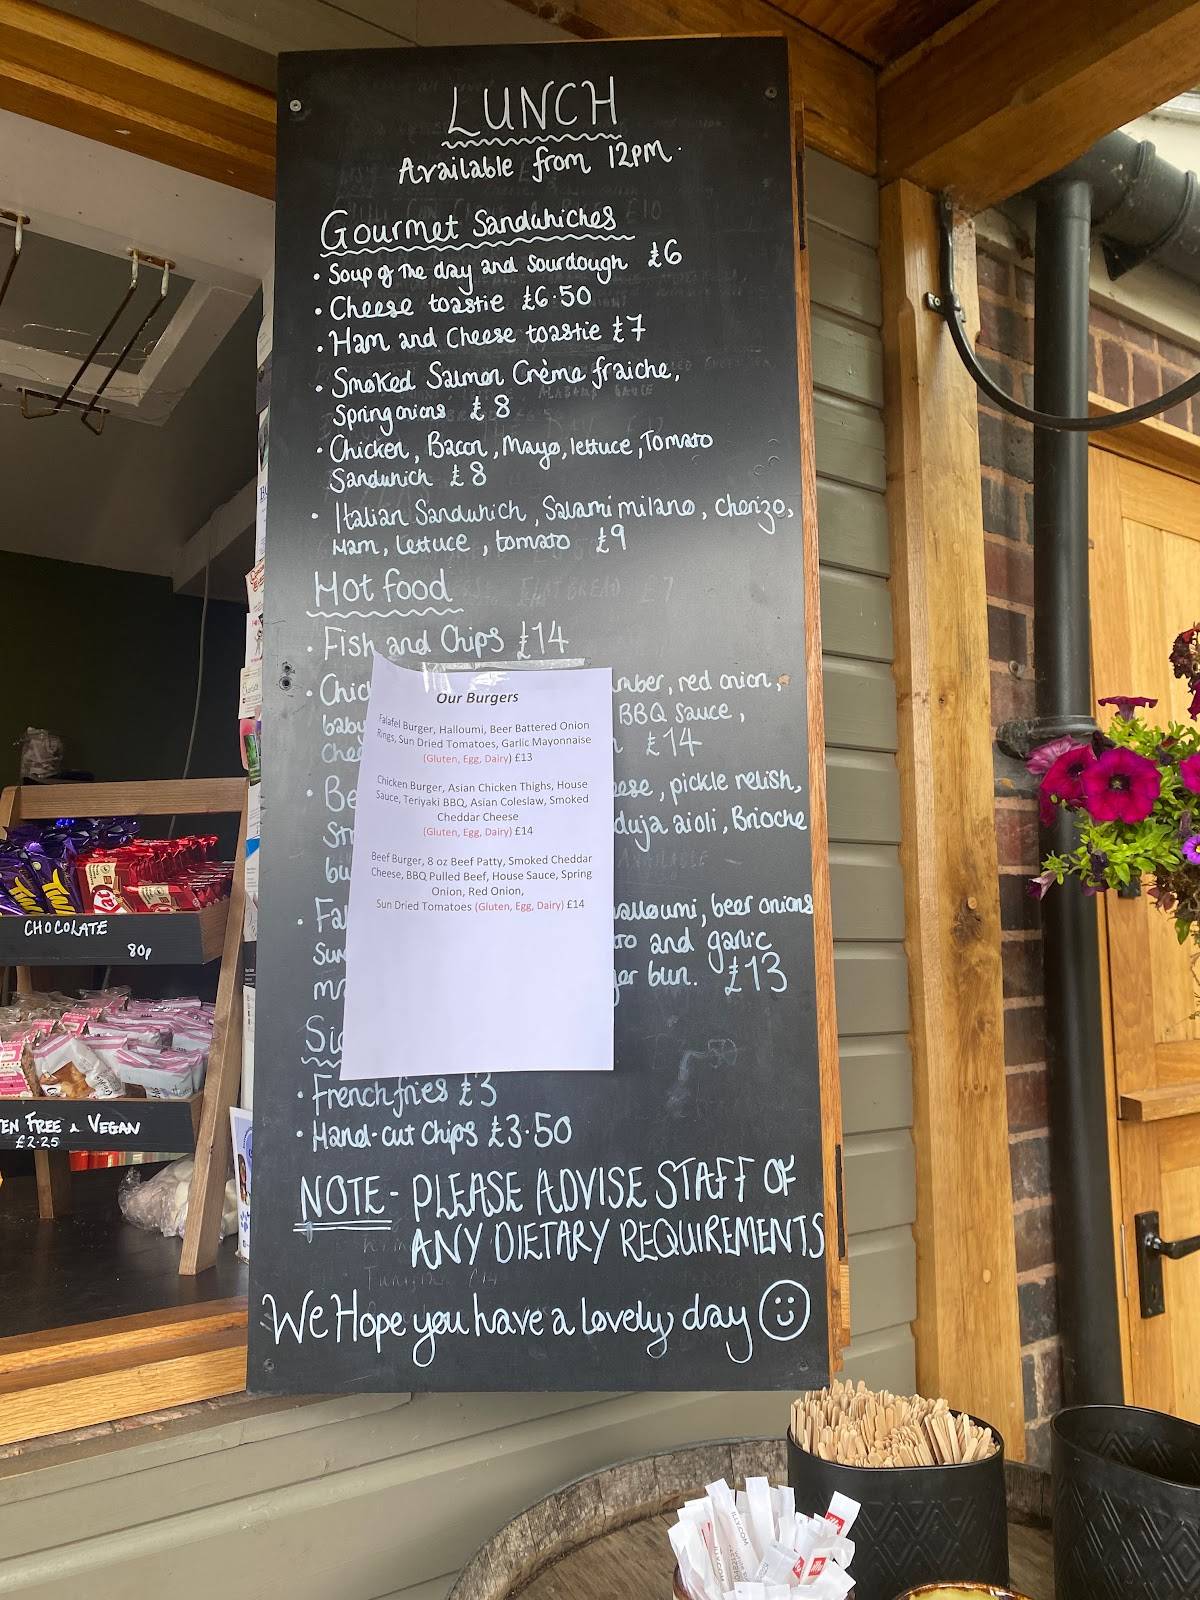 LUNCH
Available from 12pm.
Gourmet Sandwiches
• Soup of the day and sourdough £6
• Cheese toastie £6.50
• Ham and Cheese toastie £7
• Smoked Salmon Crème fraiche,
Spring onions £8
• Chicken, Bacon, Mayo, lettuce, Tomato
Sandwich £8
• Italian Sandwich, Salami milano, chorizo,
Ham, lettuce, tomato £9
Hot food
• Fish and Chips £14
• Chic mber, red onion,
baby BBQ Sauce,
Chee £14
• Be eese, pickle relish,
duja aioli, Brioche
bu
• Fa halloumi, beer onions
Sun to and garlic
ma ger bun. £13
Our Burgers
Falafel Burger, Halloumi, Beer Battered Onion
Rings, Sun Dried Tomatoes, Garlic Mayonnaise
(Gluten, Egg, Dairy) £13
Chicken Burger, Asian Chicken Thighs, House
Sauce, Teriyaki BBQ, Asian Coleslaw, Smoked
Cheddar Cheese
(Gluten, Egg, Dairy) £14
Beef Burger, 8 oz Beef Patty, Smoked Cheddar
Cheese, BBQ Pulled Beef, House Sauce, Spring
Onion, Red Onion,
Sun Dried Tomatoes (Gluten, Egg, Dairy) £14
Si
• French fries £3
• Hand-cut Chips £3.50
NOTE - PLEASE ADVISE STAFF OF
ANY DIETARY REQUIREMENTS
We Hope you have a lovely day
CHOCOLATE
80p
EN FREE & VEGAN
£2.25
ILLY.COM
illy